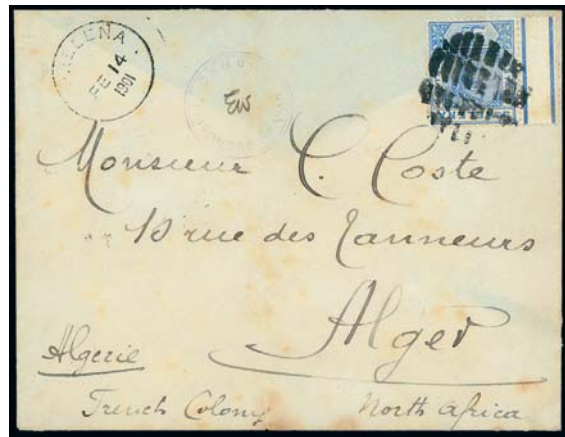 HELENA
FE 14
1901
EW
Monsieur C. Coste
13 rue des Tanneurs
Alger
Algerie
French Colony North Africa